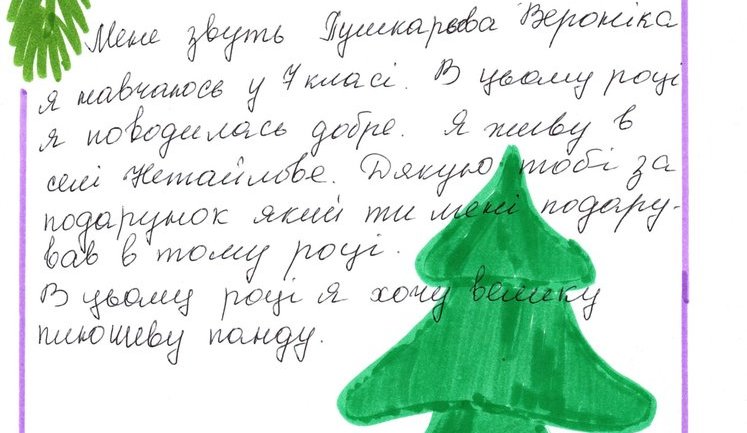 Мене звуть Пушкарьова Вероніка
я навчаюсь у 7 класі. В цьому році
я поводилась добре. Я живу в
селі Нетайлове. Дякую тобі за
подарунок який ти мені подару-
вав в тому році.
В цьому році я хочу велику
плюшеву панду.